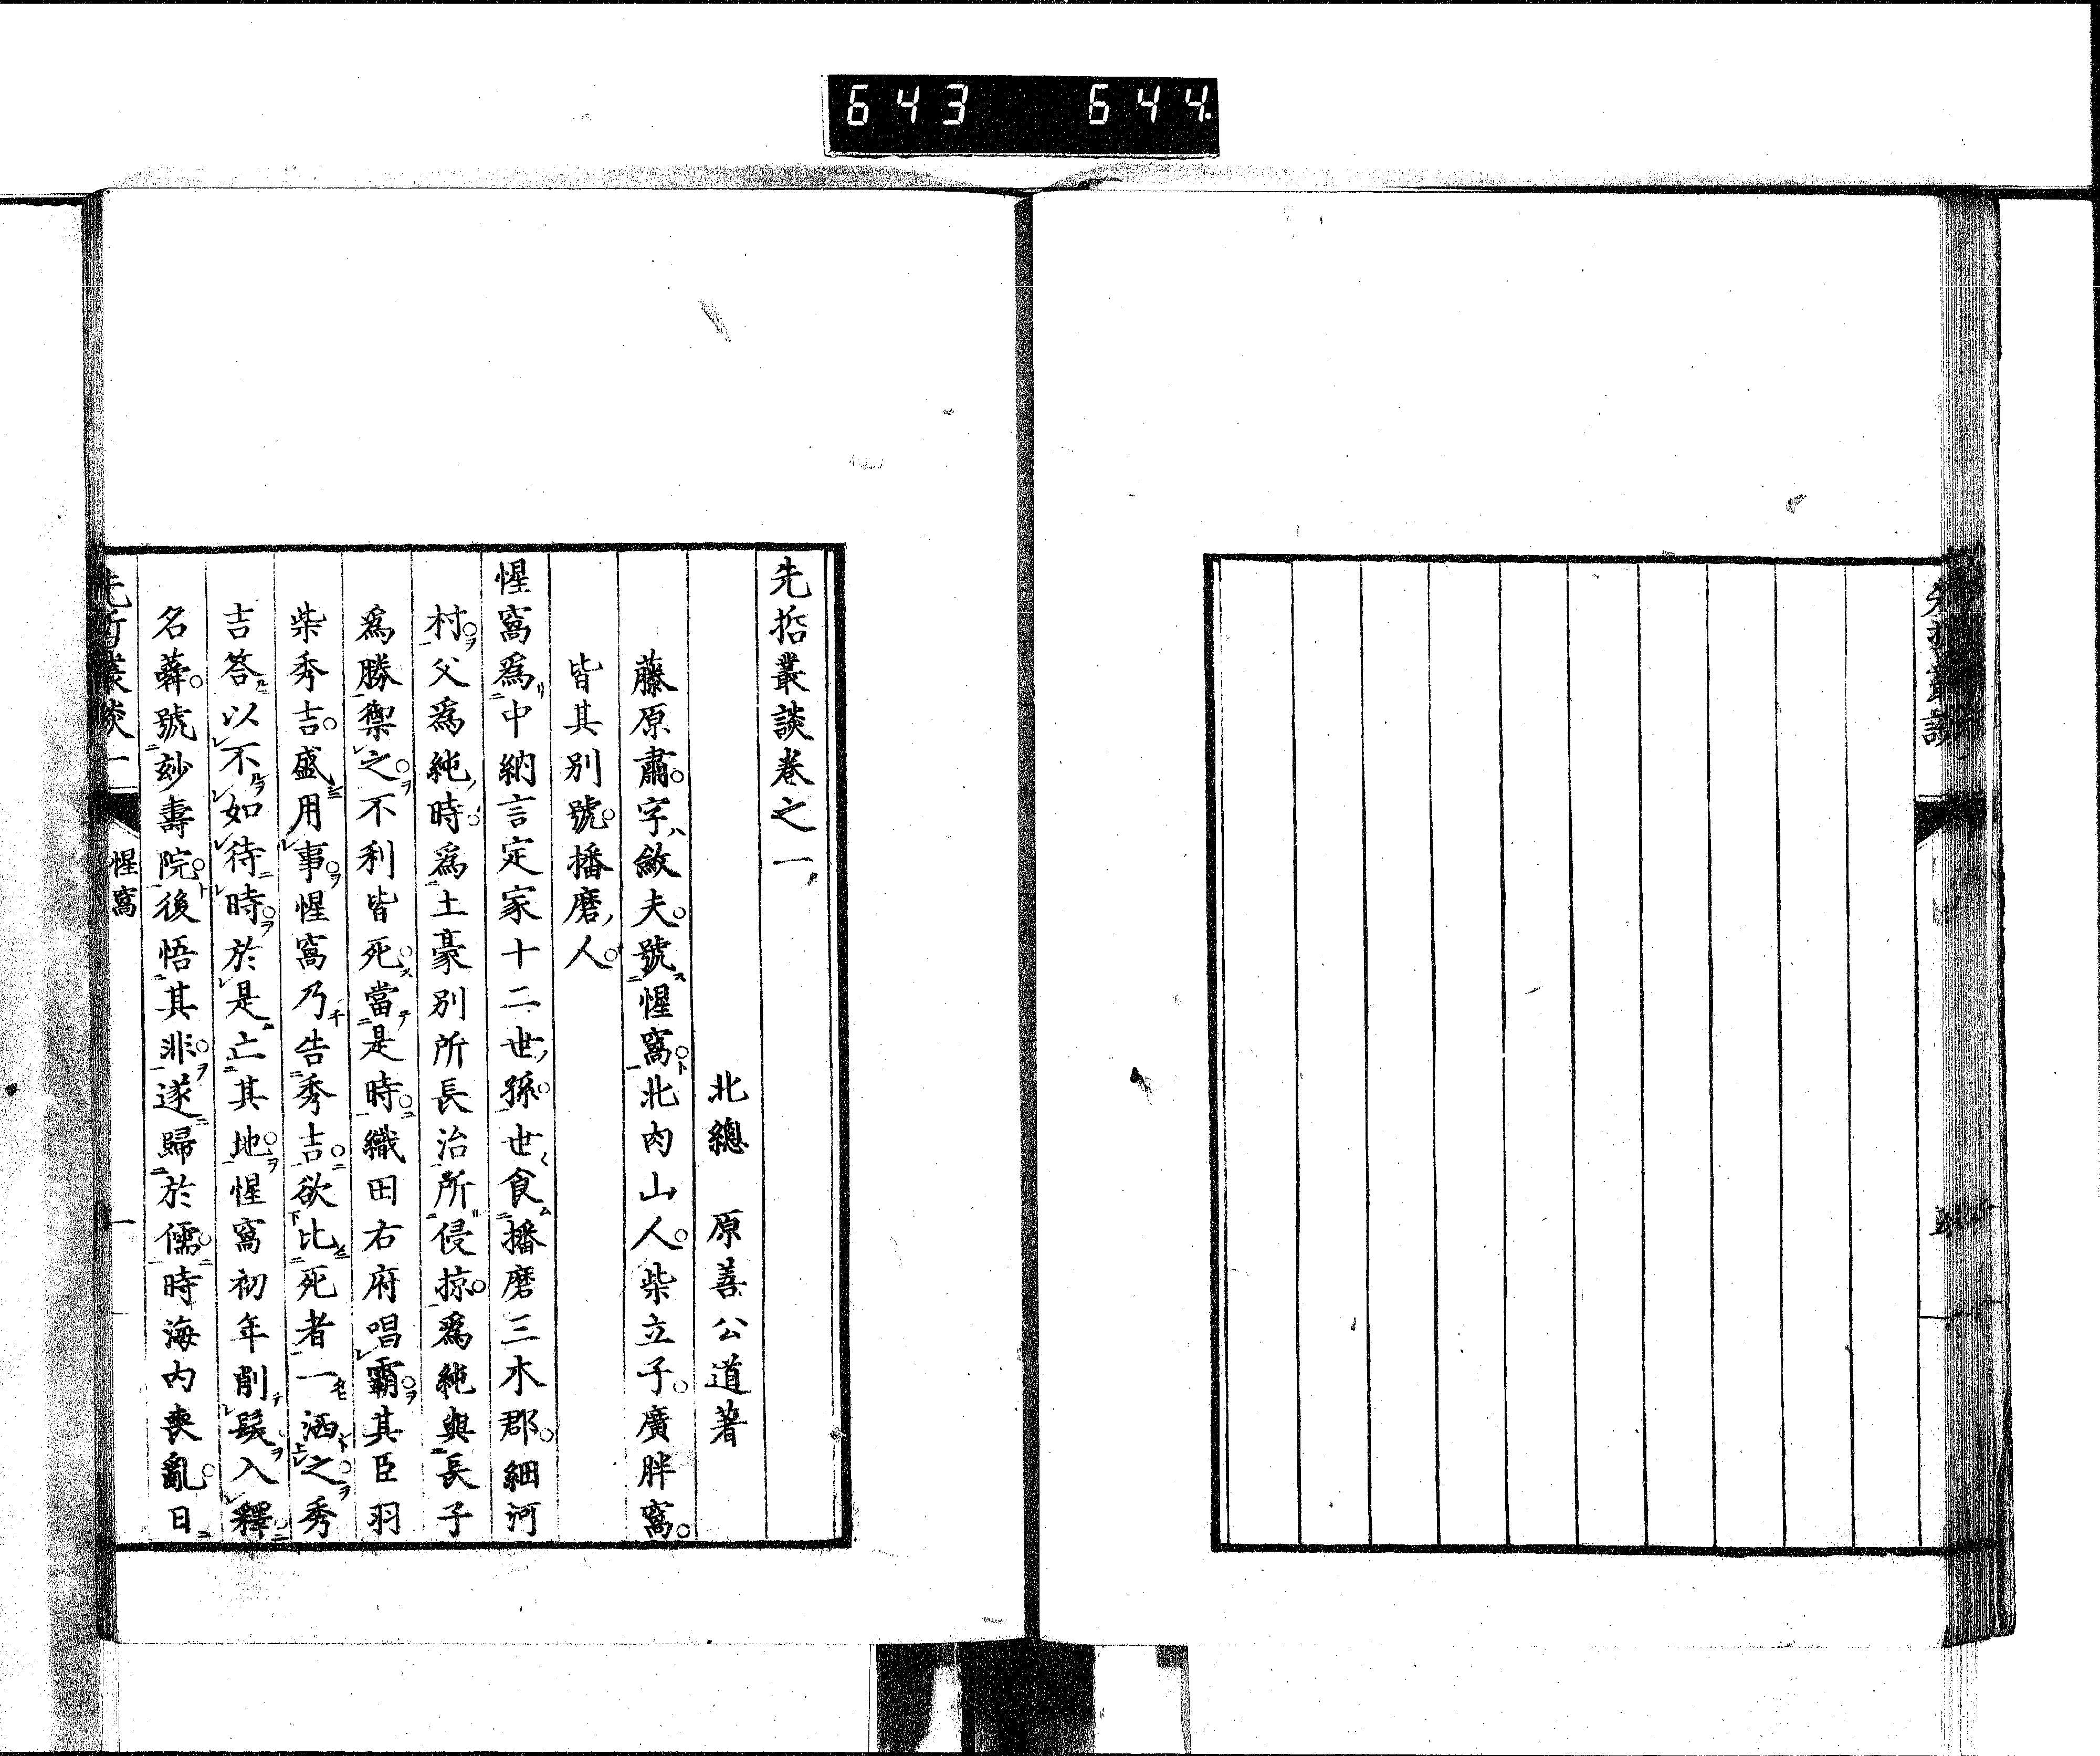 643 644
先哲叢談
先哲叢談卷之一
北總 原善公道著
藤原肅字斂夫號惺窩北肉山人柴立子廣胖窩
皆其別號播磨人
惺窩爲中納言定家十二世孫世食播磨三木郡細河
村父爲純時爲土豪別所長治所侵掠爲純與長子
爲勝禦之不利皆死當是時織田右府唱霸其臣羽
柴秀吉盛用事惺窩乃告秀吉欲比死者一洒之秀
吉答以不如待時於是亡其地惺窩初年削髮入釋
名蕣號妙壽院後悟其非遂歸於儒時海內喪亂日
先哲叢談一 惺窩 一